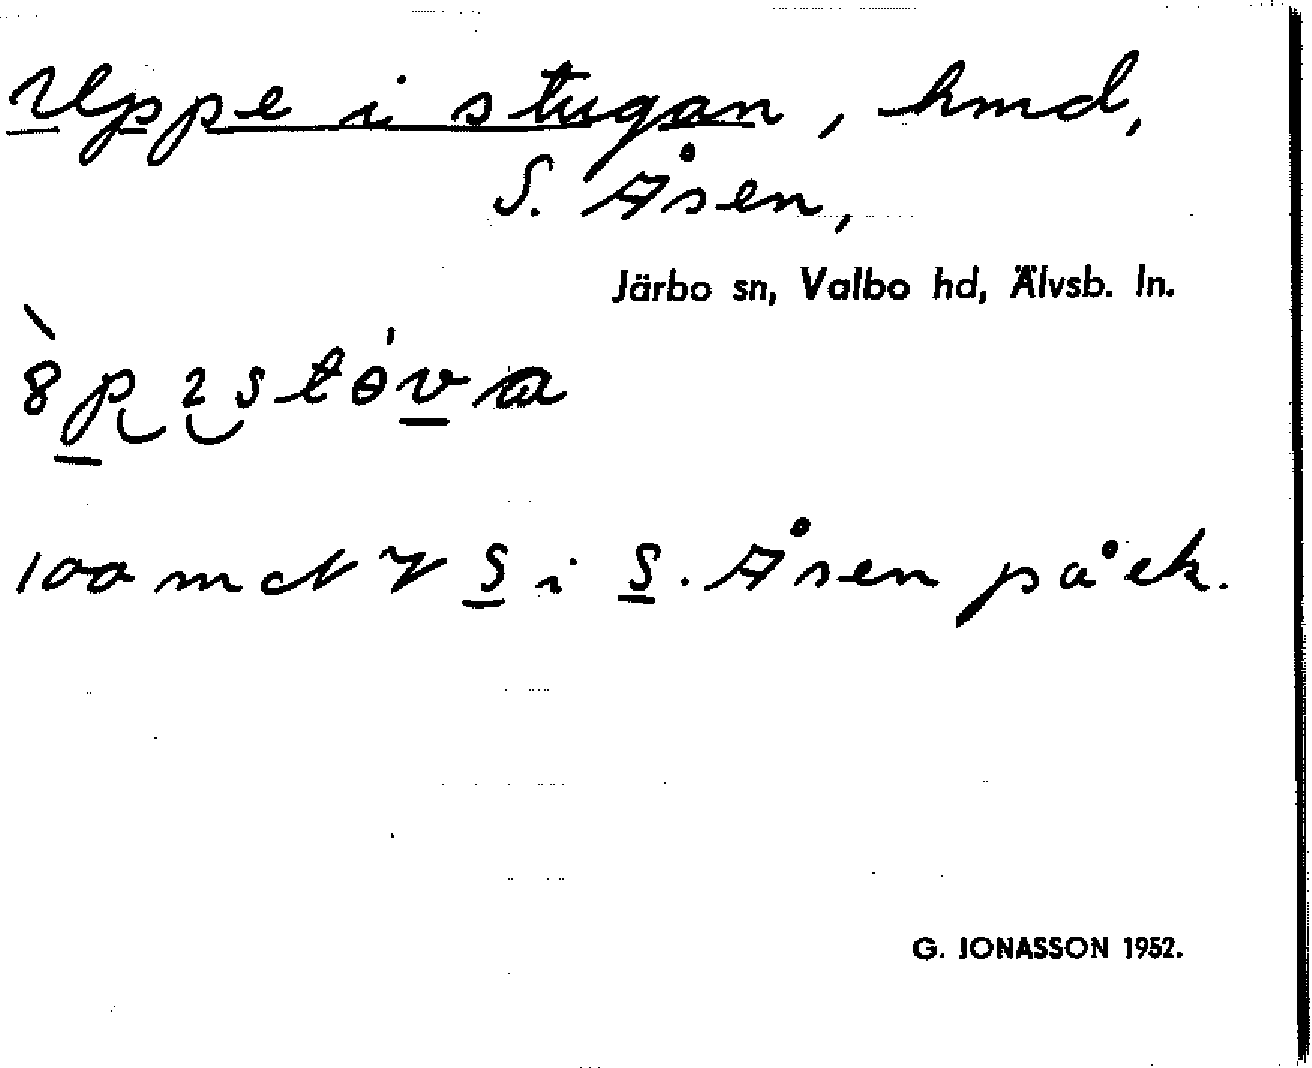 Uppe i stugan, hmd,
S. Åsen,
Järbo sn, Valbo hd, Älvsb. ln.
100 m
S i S. Åsen på ek.
G. JONASSON 1952.